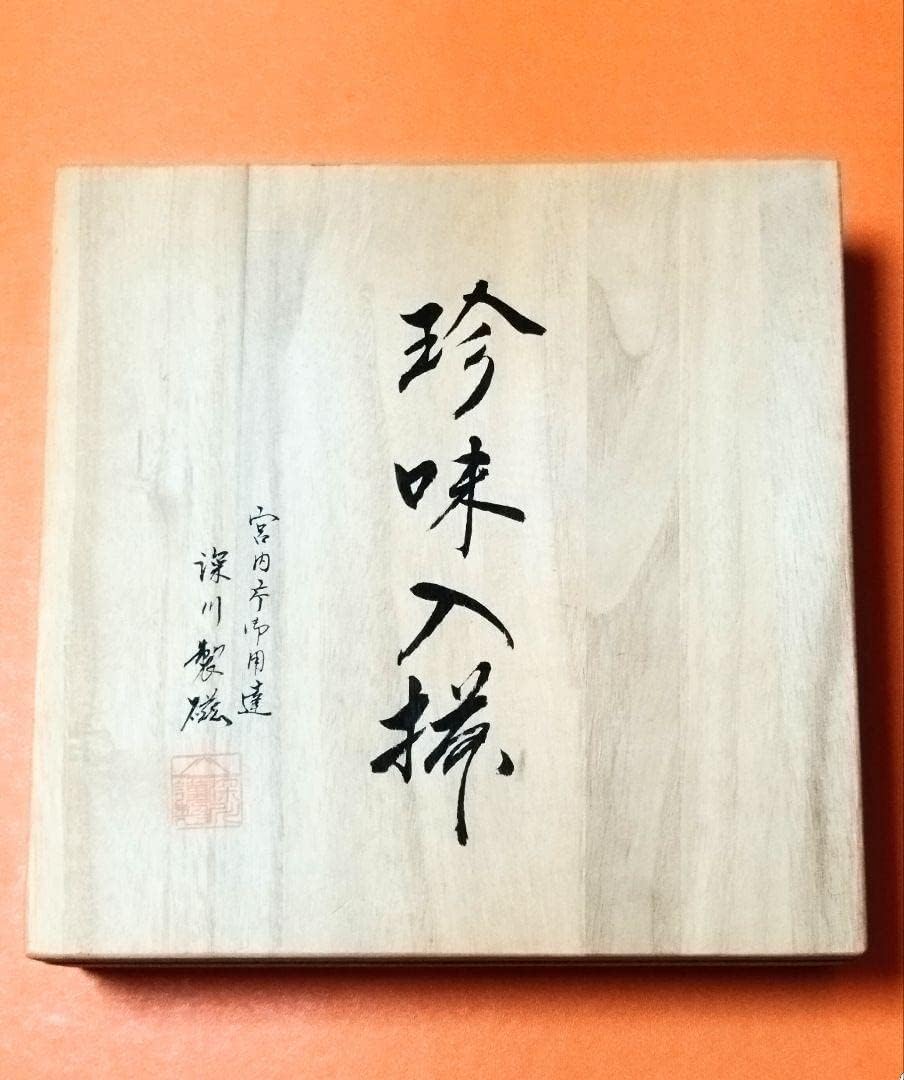 珍味入揃
宮内庁御用達
深川製磁